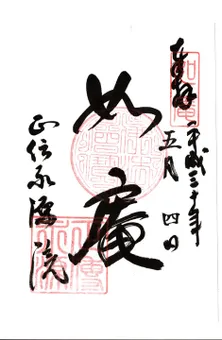 奉拝
平成三十年
五月四日
如庵
正伝永源院